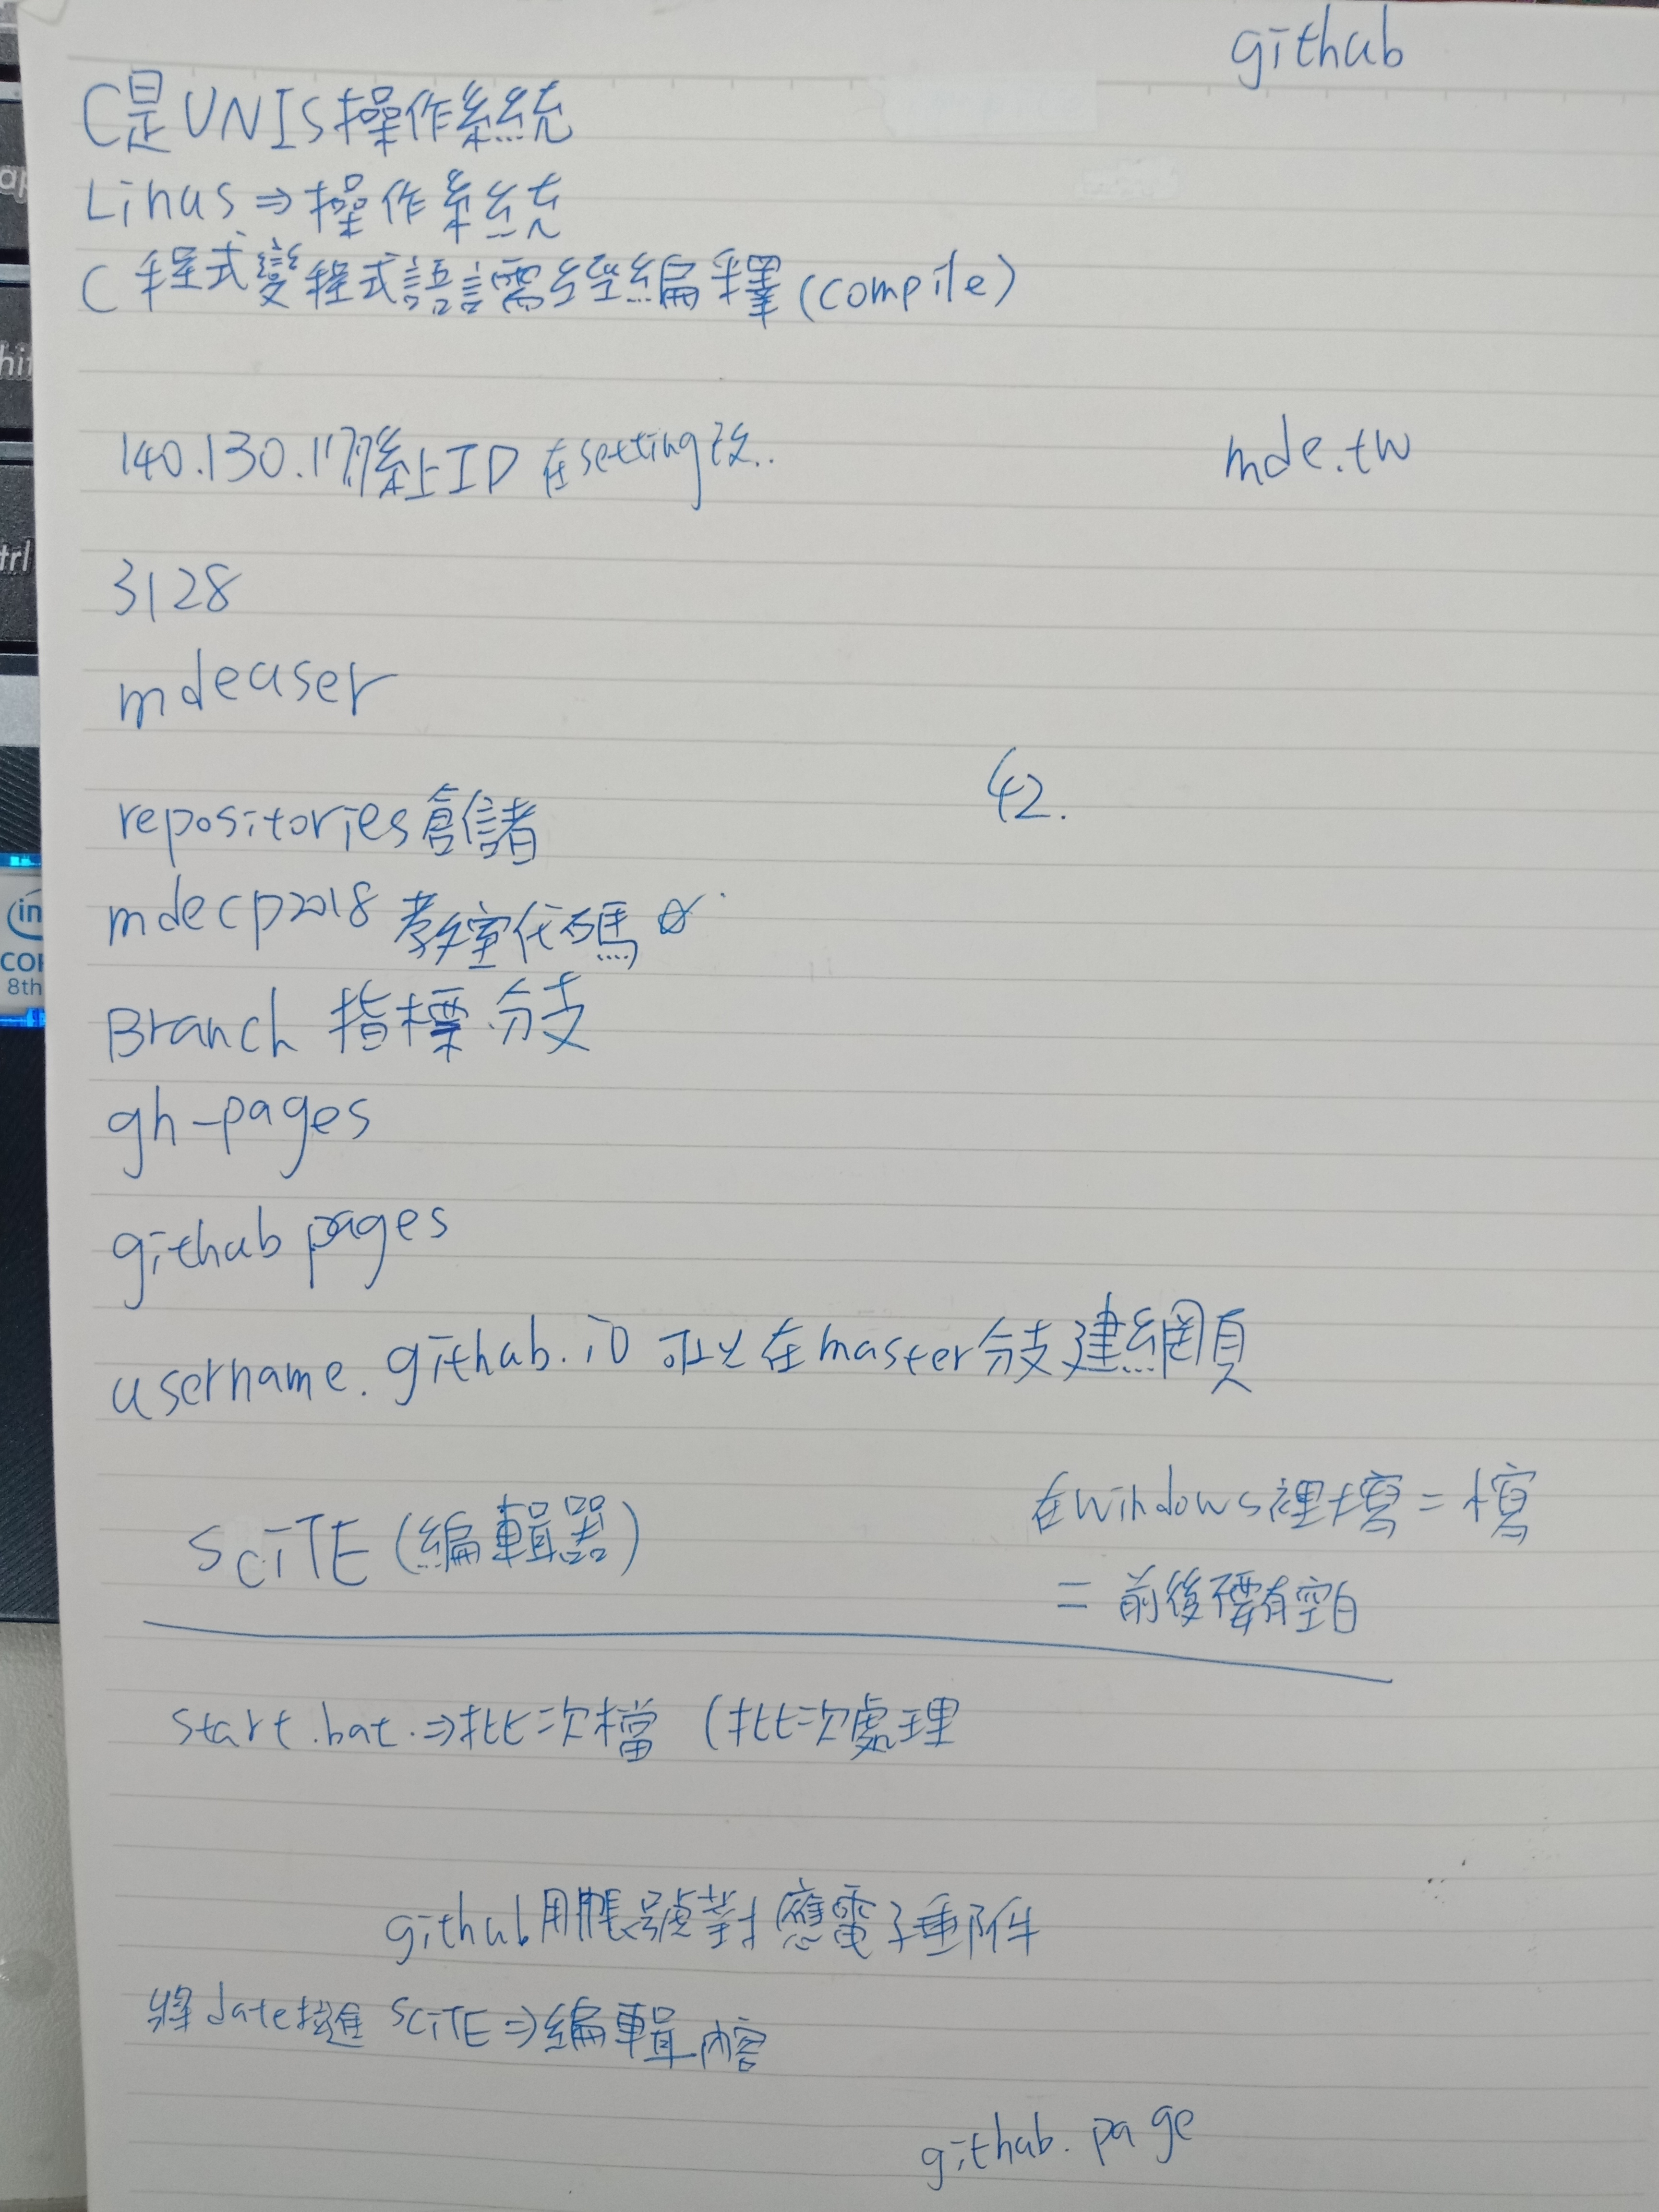 github
C是UNIS操作系統
Linus⇒操作系統
C程式變程式語言需經編釋(compile)
140.130.17.7後上ID 在setting改..
mde.tw
3128
mdeuser
42.
repositories倉儲
mdecp2018 教室代碼
Branch 指標 分支
gh-pages
github pages
username.github.io 可以在master分支建網頁
在windows裡寫=
SciTE(編輯器)
=前後不要有空白
start.bat.⇒批次檔 (批次處理
github用帳號對應電子郵件
將date拉進 SciTE⇒編輯內容
github.page
in
COR
8th